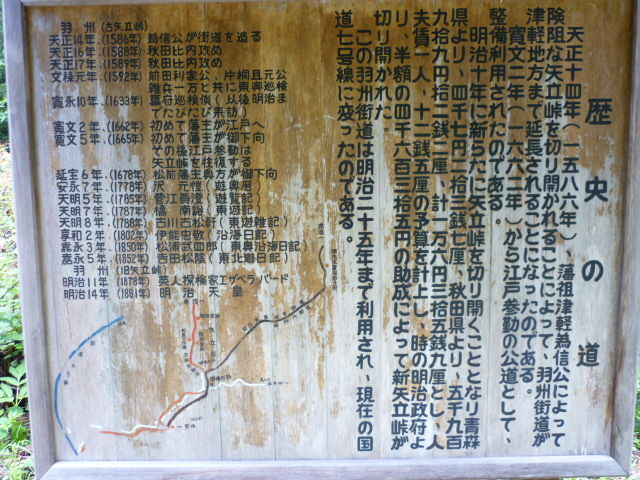 歴史の道
天正十四年(一五八六年)、藩祖津軽為信公によって
険阻な矢立峠を切り開かれることによって、羽州街道が
津軽地方まで延長されることになったのである。
寛文二年(一六六二年)から江戸参勤の公道として、
整備利用されたのである。
明治十年に新らたに矢立峠を切り開くこととなり青森
県より、四千七円二拾三銭七厘、秋田県より、五千九百
九拾九円拾二銭二厘、計一万六円三拾五銭九厘とし、人
夫賃一人、十二銭五厘の予算を計上し、時の明治政府よ
り、半額の四千六百三拾五円の助成によって新矢立峠が
切り開かれた。
この羽州街道は明治二十五年まで利用され、現在の国
道七号線に変ったのである。
羽州(古矢立峠)
天正14年、(1586年)為信公が街道を造る
天正16年、(1588年)秋田比内攻め
天正17年、(1589年)秋田比内攻め
文禄元年、(1592年)前田利家公、片桐且元公
雑兵一万と共に東奥巡検
寛永10年、(1633年)幕府巡検使(以後明治ま
でたびたび来訪)
寛文2年、(1662年)初めて藩主が江戸へ
寛文5年、(1665年)初めて藩主が御下向
その後江戸参勤は
矢立峠を往復する
延宝6年、(1678年)松前藩主奥方が御下向
安永7年、(1778年)沢元愷(遊奥暦)
天明5年、(1785年)菅江真澄(遊覧記)
天明7年、(1787年)橘南谿(東遊記)
天明8年、(1788年)古川古松軒(東遊雑記)
享和2年、(1802年)伊能忠敬(沿海日記)
嘉永3年、(1850年)松浦武四郎(東奥沿海日記)
嘉永5年、(1852年)吉田松陰(東北遊日記)
羽州(旧矢立峠)
明治11年(1878年)英人探検家エザベラバード
明治14年(1881年)明治天皇